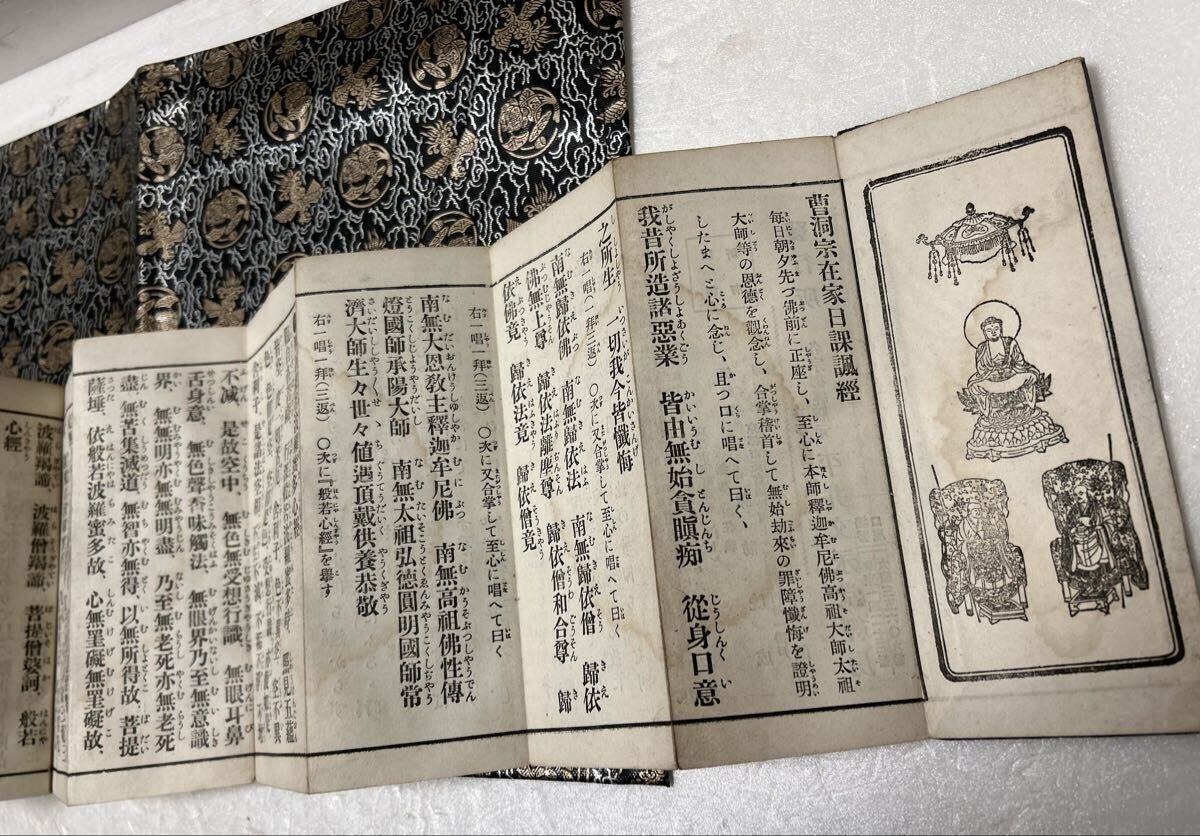 曹洞宗在家日課諷經
毎日朝夕先づ佛前に正座し、至心に本師釋迦牟尼佛高祖大師太祖
大師等の恩德を觀念し、合掌稽首して無始劫來の罪障懺悔を證明
したまへと心に念し、且つ口に唱へて曰く、
我昔所造諸惡業　皆由無始貪瞋痴　從身口意
之所生　一切我今皆懺悔
右一唱(一拜三返)　○次に又合掌して至心に唱へて曰く
南無歸依佛　南無歸依法　南無歸依僧　歸依
佛無上尊　歸依法離塵尊　歸依僧和合尊　歸
依佛竟　歸依法竟　歸依僧竟
右一唱一拜(三返)　○次に又合掌して至心に唱へて曰く
南無大恩敎主釋迦牟尼佛　南無高祖佛性傳
燈國師承陽大師　南無太祖弘德圓明國師常
濟大師生々世々値遇頂戴供養恭敬
右一唱一拜(三返)　○次に『般若心經』を擧す
照見五蘊
不減　是故空中、無色無受想行識、無眼耳鼻
舌身意、無色聲香味觸法、無眼界乃至無意識
界、無無明亦無無明盡、乃至無老死亦無老死
盡、無苦集滅道、無智亦無得、以無所得故、菩提
薩埵、依般若波羅蜜多故、心無罣礙無罣礙故、
波羅羯諦、波羅僧羯諦、菩提僧莎訶、般若
心經、